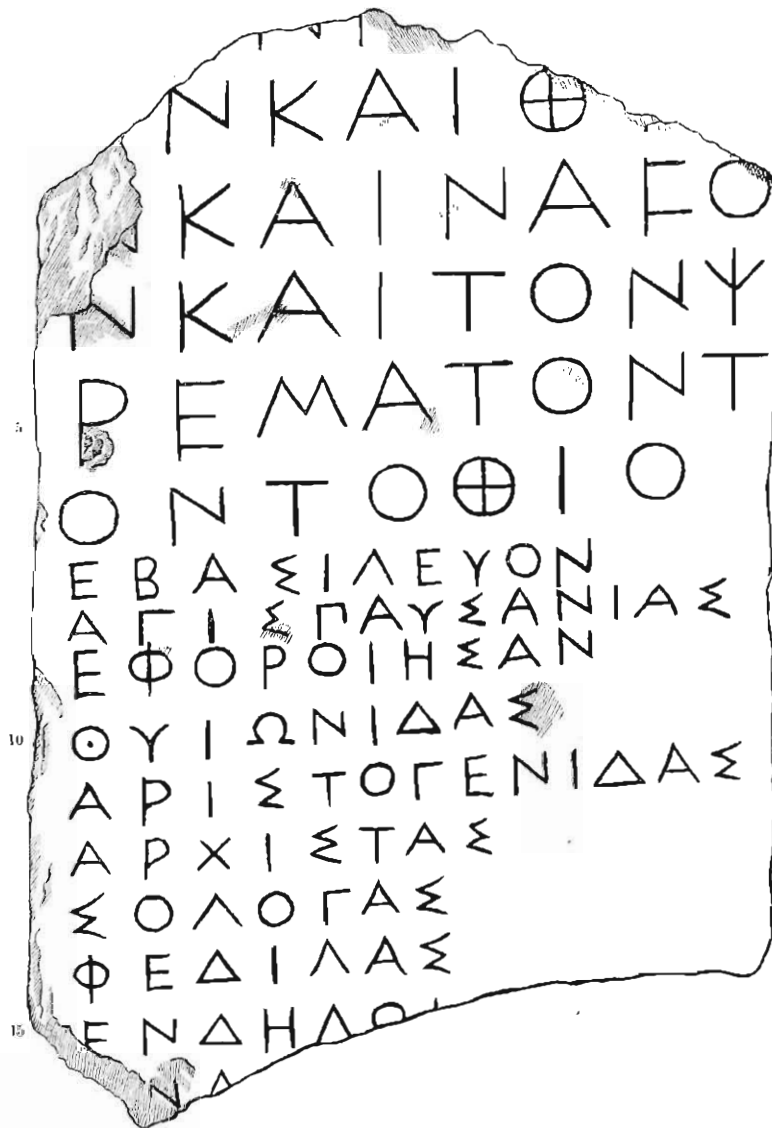 ΝΚΑΙΘ
ΝΚΑΙΝΑϜΟ
ΝΚΑΙΤΟΝΨ
5 ΡΕΜΑΤΟΝΤ
ΟΝΤΟΘΙΟ
ΕΒΑΣΙΛΕΥΟΝ
ΑΓΙΣΠΑΥΣΑΝΙΑΣ
ΕΦΟΡΟΙΗΣΑΝ
10 ΘΥΙΩΝΙΔΑΣ
ΑΡΙΣΤΟΓΕΝΙΔΑΣ
ΑΡΧΙΣΤΑΣ
ΣΟΛΟΓΑΣ
ΦΕΔΙΛΑΣ
15 ΕΝΔΗΔΟ
ΝΔ